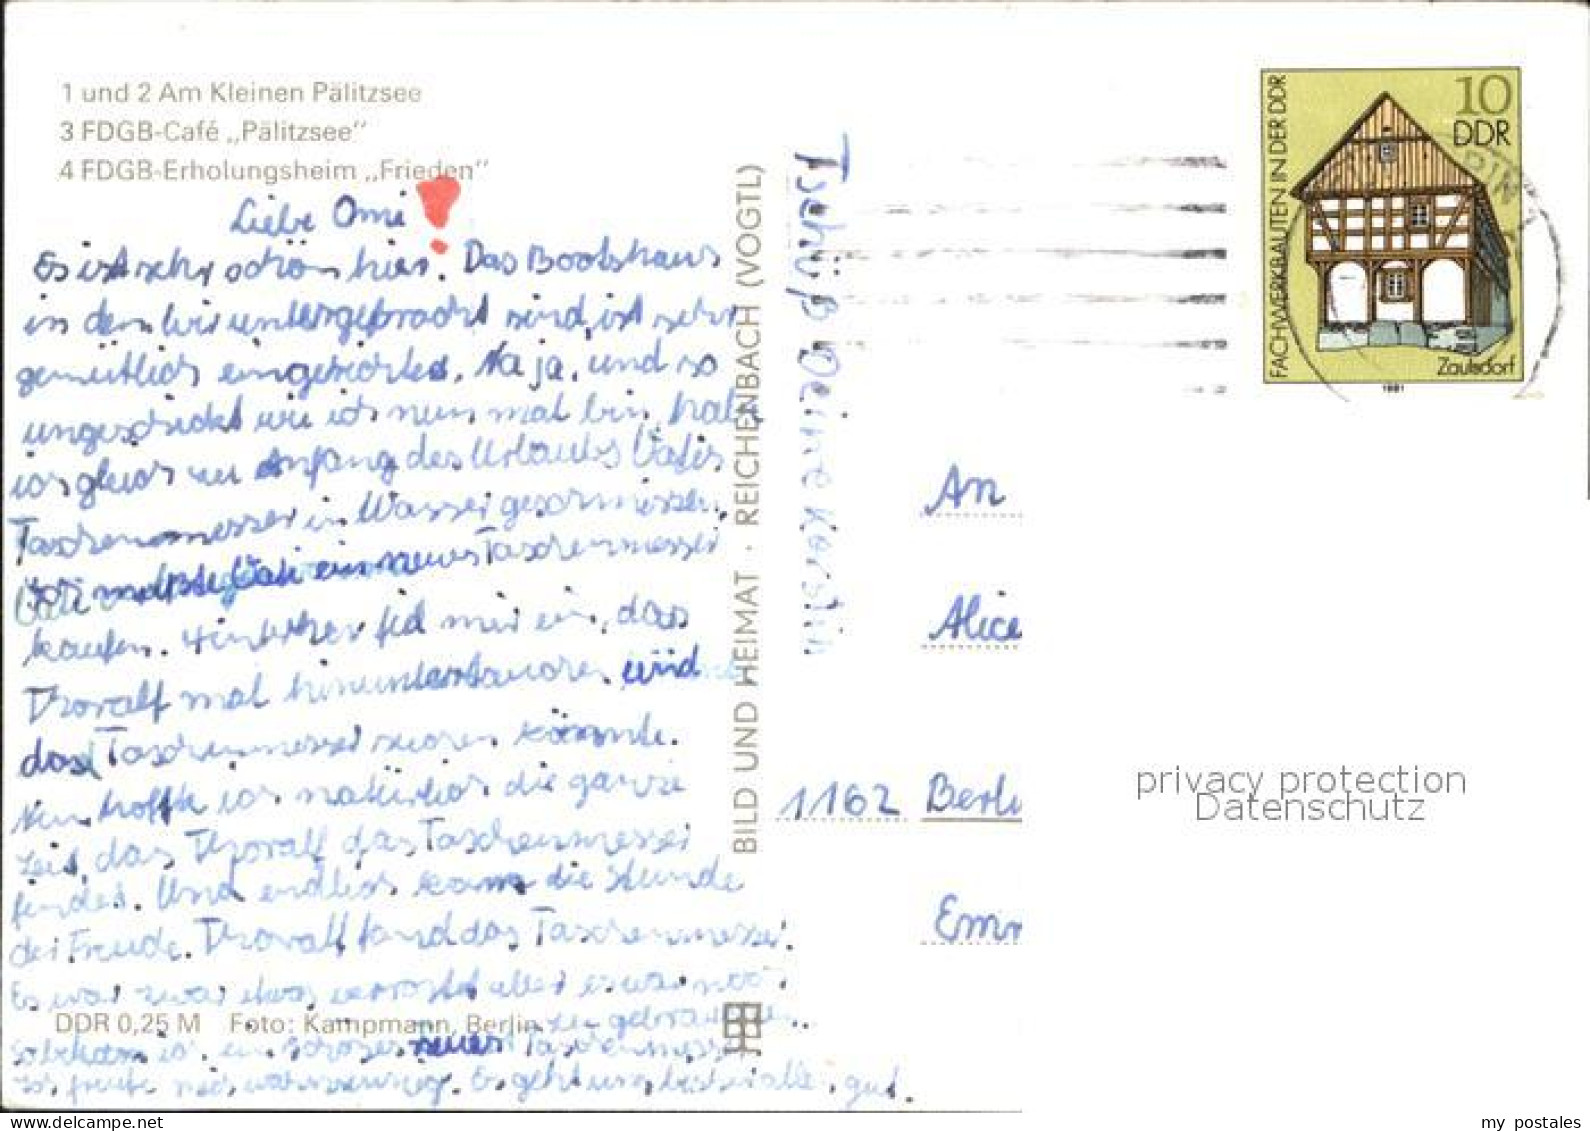 1 und 2 Am Kleinen Pälitzsee
3 FDGB-Café „Pälitzsee"
4 FDGB-Erholungsheim „Frieden"
Liebe Omi!
Es ist sehr schön hier. Das Bootshaus
in dem wir untergebracht sind, ist sehr
gemütlich eingerichtet. Na ja, und so
ungeschickt wie ich nun mal bin, habe
ich gleich zu Anfang des Urlaubs Vatis
Taschenmesser in Wasser geschmissen.
mußte Vati ein neues Taschenmesser
kaufen. Hinterher fiel mir ein, das
Thoralf mal hinuntertauchen und
das Taschenmesser suchen könnte.
Nun hoffte ich natürlich die ganze
Zeit, das Thoralf das Taschenmesser
findet. Und endlich kam die Stunde
der Freude. Thoralf fand das Taschenmesser.
Es war zwar etwas verrostet aber es war noch
zu gebrauchen.
DDR 0,25 M Foto: Kampmann, Berlin
So bekam ich ein schönes neues Taschenmesser
Ich freute mich wahnsinnig. Es geht uns bisher allen gut.
Tschüß Deine Kerstin
BILD UND HEIMAT · REICHENBACH (VOGTL)
FACHWERKBAUTEN IN DER DDR
10
DDR
Zaulsdorf
1981
An
Alice
1162 Berli
privacy protection
Datenschutz
my postales
www.delcampe.net